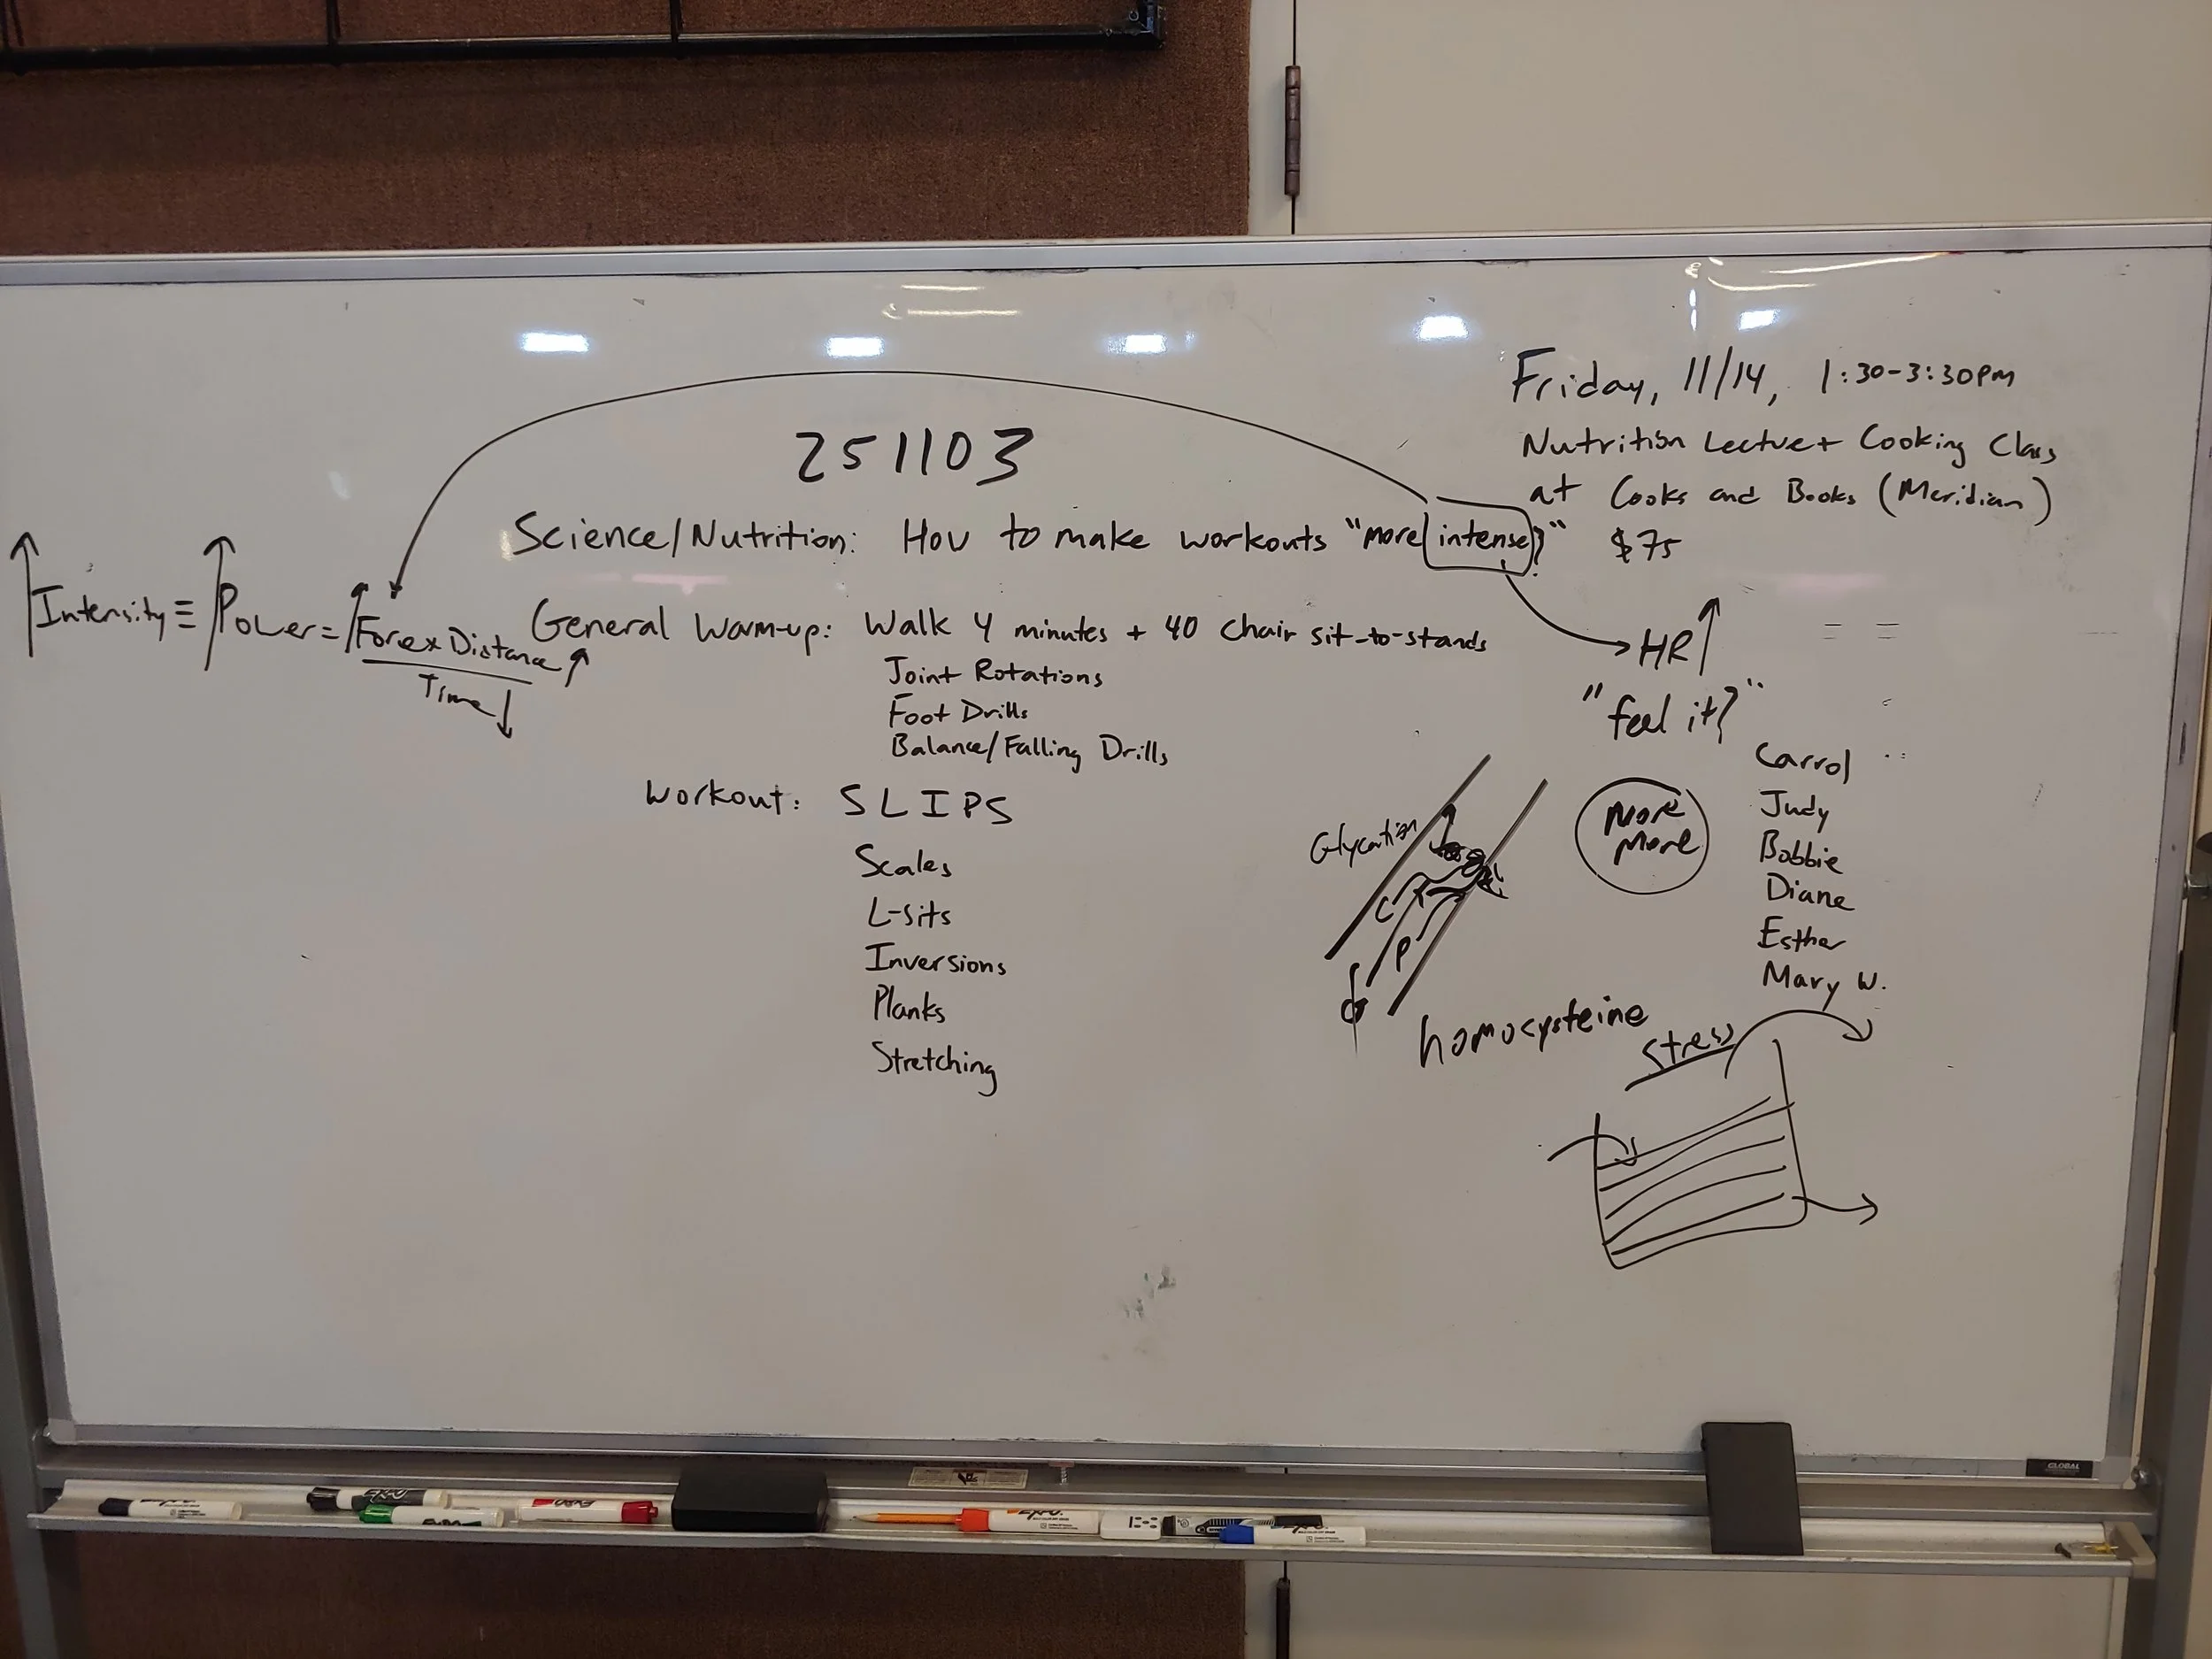 Friday, 11/14, 1:30-3:30PM
Nutrition Lecture + Cooking Class
at Cooks and Books (Meridian)
$75
251103
Science/Nutrition: How to make workouts "more intense?"
↑Intensity ≡ ↑Power = ↑Force x Distance↑
Time↓
General Warm-up: Walk 4 minutes + 40 chair sit-to-stands
Joint Rotations
Foot Drills
Balance/Falling Drills
Workout: SLIPS
Scales
L-sits
Inversions
Planks
Stretching
HR↑
"feel it?"
More
More
Carrol
Judy
Bobbie
Diane
Esther
Mary W.
Glycation
C
P
homocysteine
Stress
GLOBAL
EXPO